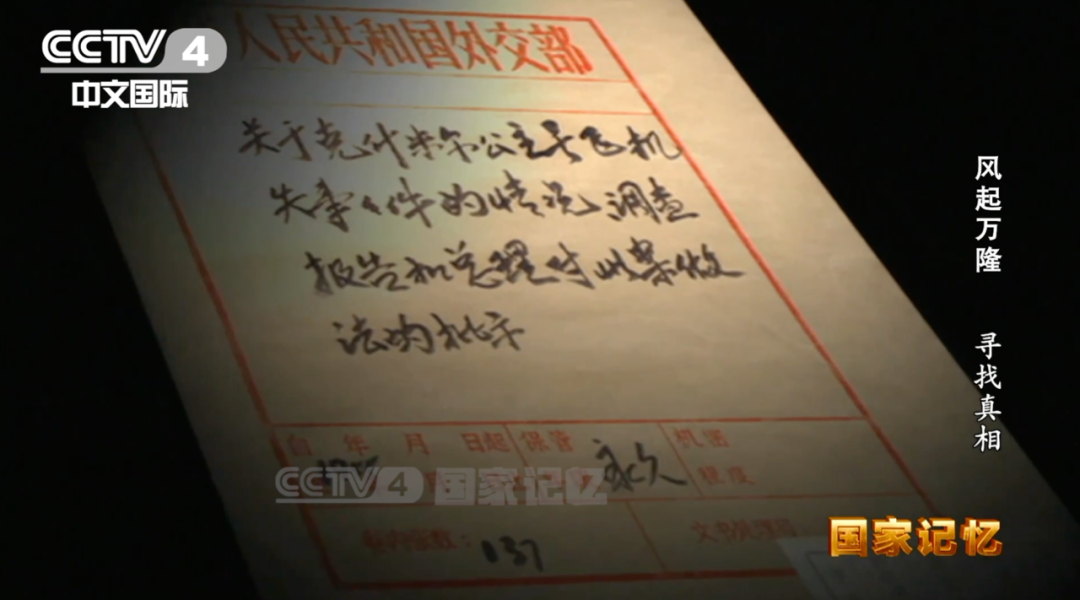 CCTV 4
中文国际
人民共和国外交部
关于克什米尔公主号飞机
失事事件的情况调查
报告和总理对此案做
法的批示
自 年 月 日起
保管
永久
机密
程度
137
CCTV 4 国家记忆
风起万隆 寻找真相
国家记忆